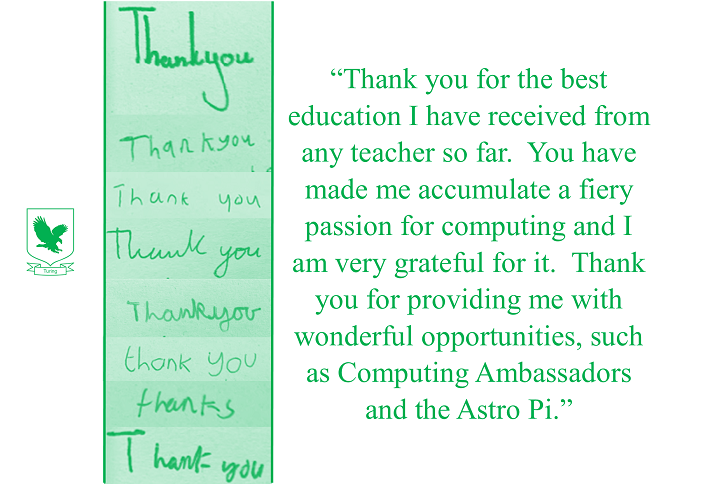 Thankyou
Thankyou
Thank you
Thank you
Thankyou
thank you
thanks
Thank you
Turing
“Thank you for the best
education I have received from
any teacher so far.  You have
made me accumulate a fiery
passion for computing and I
am very grateful for it.  Thank
you for providing me with
wonderful opportunities, such
as Computing Ambassadors
and the Astro Pi.”